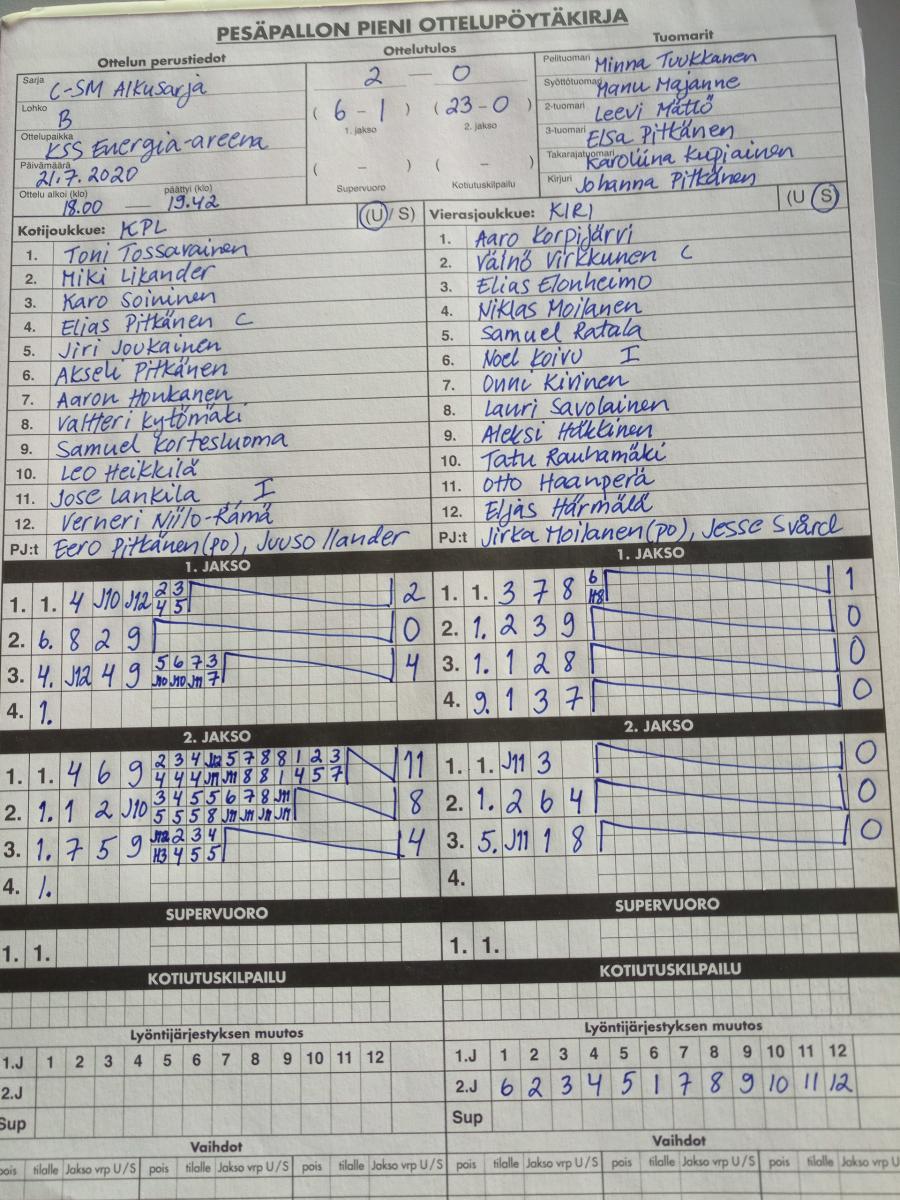 PESÄPALLON PIENI OTTELUPÖYTÄKIRJA
Ottelun perustiedot
Sarja C-SM Alkusarja
Lohko B
Ottelupaikka KSS Energia-areena
Päivämäärä 21.7.2020
Ottelu alkoi (klo) 18.00 — päättyi (klo) 19.42
Ottelutulos
2 — 0
( 6 - 1 ) ( 23 - 0 )
1. jakso 2. jakso
( - ) ( - )
Supervuoro Kotiutuskilpailu
Tuomarit
Pelituomari Minna Tuukkanen
Syöttötuomari Manu Majanne
2-tuomari Leevi Mättö
3-tuomari Elsa Pitkänen
Takarajatuomari Karoliina Kupiainen
Kirjuri Johanna Pitkänen
Kotijoukkue: KPL (U / S)
1. Toni Tossavainen
2. Miki Likander
3. Karo Soininen
4. Elias Pitkänen C
5. Jiri Joukainen
6. Akseli Pitkänen
7. Aaron Honkanen
8. Valtteri Kytömäki
9. Samuel Kortesluoma
10. Leo Heikkilä
11. Jose Lankila I
12. Verneri Niilo-Rämä
PJ:t Eero Pitkänen (po), Juuso Ilander
Vierasjoukkue: KIRI (U / S)
1. Aaro Korpijärvi
2. Väinö Virkkunen C
3. Elias Elonheimo
4. Niklas Moilanen
5. Samuel Ratala
6. Noel Koivu I
7. Onni Kivinen
8. Lauri Savolainen
9. Aleksi Häkkinen
10. Tatu Rauhamäki
11. Otto Haanperä
12. Eljas Härmälä
PJ:t Jirka Moilanen (po), Jesse Svärd
1. JAKSO
1. 1. 4 J10 J12 2 3 2
4 5
2. 6. 8 2 9 0
3. 4. J12 4 9 5 6 7 3 4
J10 J10 J11 7
4. 1.
1. JAKSO
1. 1. 3 7 8 6 1
H8
2. 1. 2 3 9 0
3. 1. 1 2 8 0
4. 9. 1 3 7 0
2. JAKSO
1. 1. 4 6 9 2 3 4 J12 5 7 8 8 1 2 3 11
4 4 4 J11 J11 8 8 1 4 5 7
2. 1. 1 2 J10 3 4 5 5 6 7 8 J11 8
5 5 5 8 J11 J11 J11 J11
3. 1. 7 5 9 J12 2 3 4 4
H3 4 5 5
4. 1.
2. JAKSO
1. 1. J11 3 0
2. 1. 2 6 4 0
3. 5. J11 1 8 0
4.
SUPERVUORO
1. 1.
SUPERVUORO
1. 1.
KOTIUTUSKILPAILU
KOTIUTUSKILPAILU
Lyöntijärjestyksen muutos
1.J 1 2 3 4 5 6 7 8 9 10 11 12
2.J
Sup
Lyöntijärjestyksen muutos
1.J 1 2 3 4 5 6 7 8 9 10 11 12
2.J 6 2 3 4 5 1 7 8 9 10 11 12
Sup
Vaihdot
pois tilalle Jakso vrp U / S pois tilalle Jakso vrp U / S pois tilalle Jakso vrp U / S
Vaihdot
pois tilalle Jakso vrp U / S pois tilalle Jakso vrp U / S pois tilalle Jakso vrp U